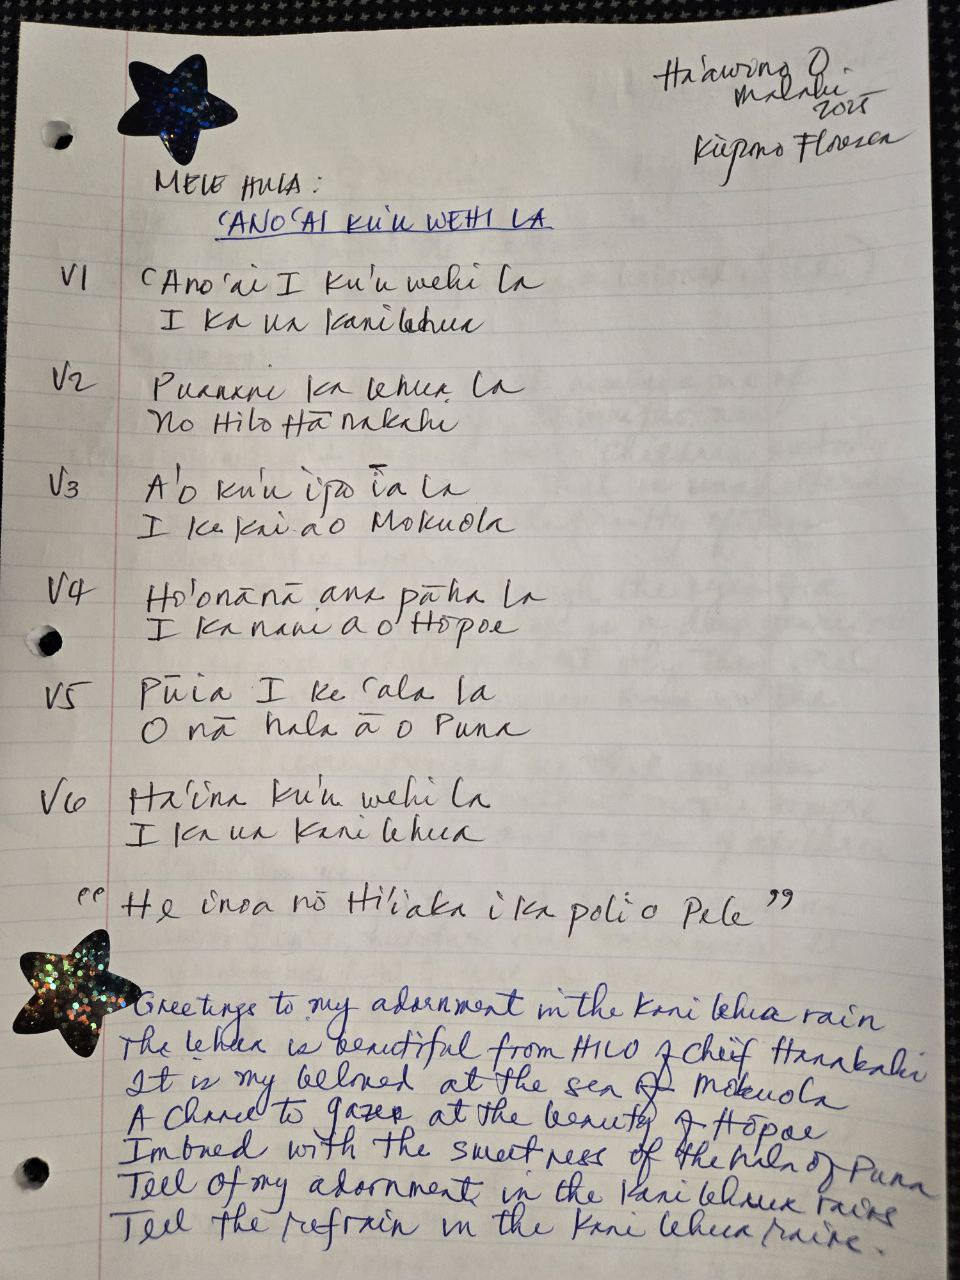 Ha'awina O
Malaki
2025
Kūpono Floresca
MELE HULA:
'ANO'AI KU'U WEHI LA
V1 'Ano'ai I Ku'u wehi La
I Ka ua Kanilehua
V2 Puanani Ka lehua La
No Hilo Hānakahi
V3 A'o Ku'u ipo īa La
I Ke Kai ao Mokuola
V4 Ho'onānā ana pāha La
I Ka nani ā o Hōpoe
V5 Pūia I Ke 'ala la
O nā hala ā o Puna
V6 Ha'ina Ku'u wehi La
I Ka ua Kanilehua
"He inoa nō Hi'iaka i Ka poli o Pele"
Greetings to my adornment in the Kani lehua rain
The lehua is beautiful from HILO of Cheif Hanakahi
It is my beloved at the sea of Mokuola
A Chance to gaze at the beauty of Hōpoe
Imbued with the sweetness of the hala of Puna
Tell of my adornment in the Kani lehua rains
Tell the refrain in the Kani lehua rains.